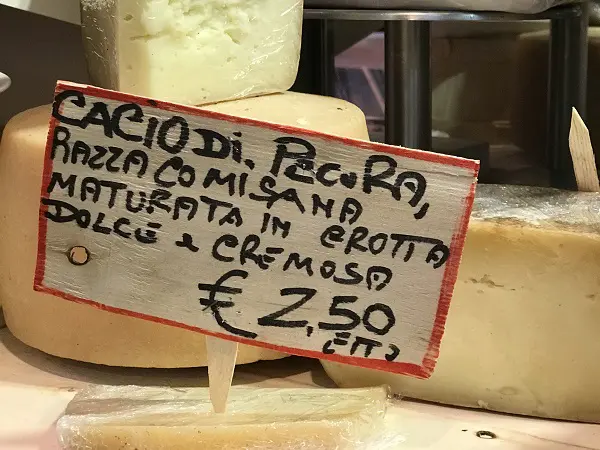 CACIO Di. PECORA,
RAZZA COMISANA
MATURATA IN GROTTA
DOLCE e CREMOSA
€ 2,50
ETTO